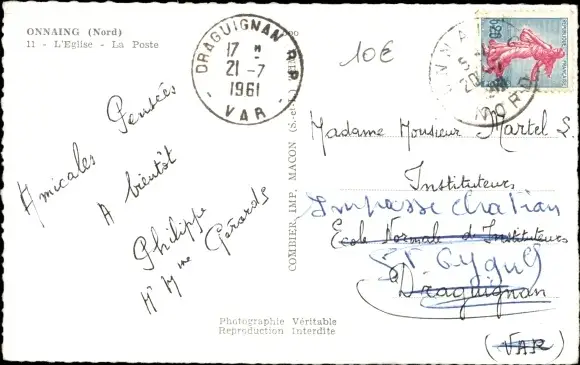 ONNAING (Nord)
11 - L'Eglise - La Poste
DRAGUIGNAN R.P.
17 H
21 - 7
1961
- VAR -
10€
NORD
0,20
Amicales Pensées
A bientôt
Philippe
Mr Mme Gérards
COMBIER IMP. MACON (S.-et-L.)
Madame Monsieur Martel S.
Instituteurs
Impasse chatian
Ecole Normale d'Instituteurs
St.
Draguignan
(VAR)
Photographie Véritable
Reproduction Interdite